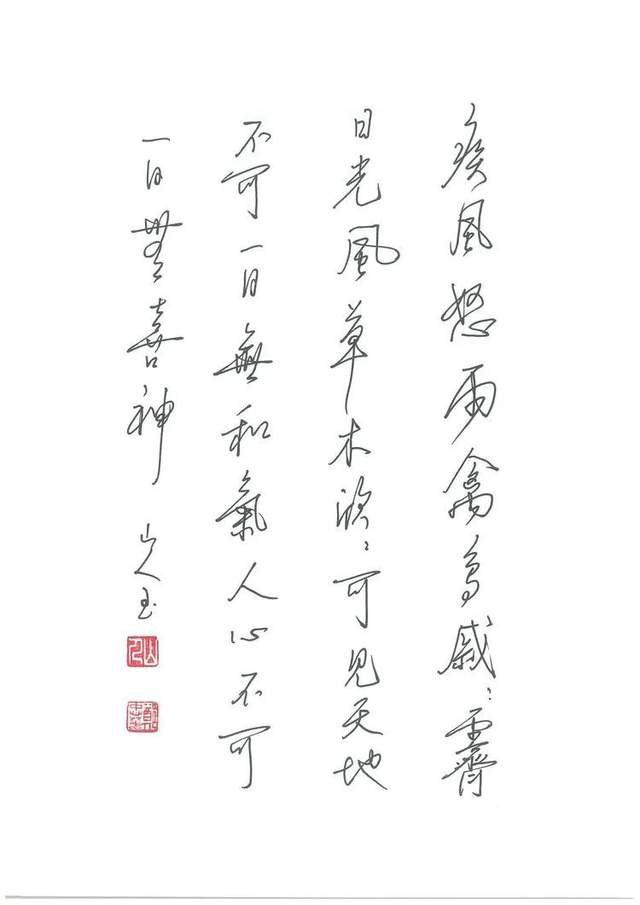 疾風怒雨禽鳥戚〻霽
日光風草木欣〻可見天地
不可一日無和氣人心不可
一日無喜神
山人玉
山人